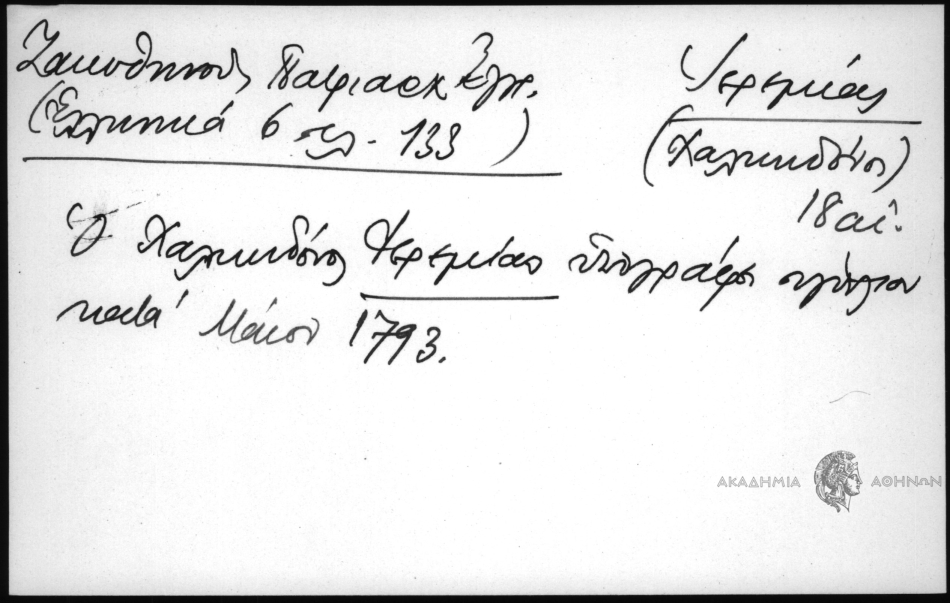 Ζακυθηνοῦ, Πατριαρχ. Ἔγγρ.
(Ἑλληνικά 6 σελ. 133)
Ἱερεμίας
(Χαλκηδόνος)
18 αἰ.
Ὁ Χαλκηδόνος Ἱερεμίας ὑπογράφει
κατά Μάϊον 1793.
ΑΚΑΔΗΜΙΑ ΑΘΗΝΩΝ